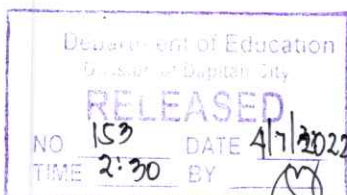 Department of Education
Division of Dapitan City
RELEASED
NO 153 DATE 4/7/2022
TIME 2:30 BY